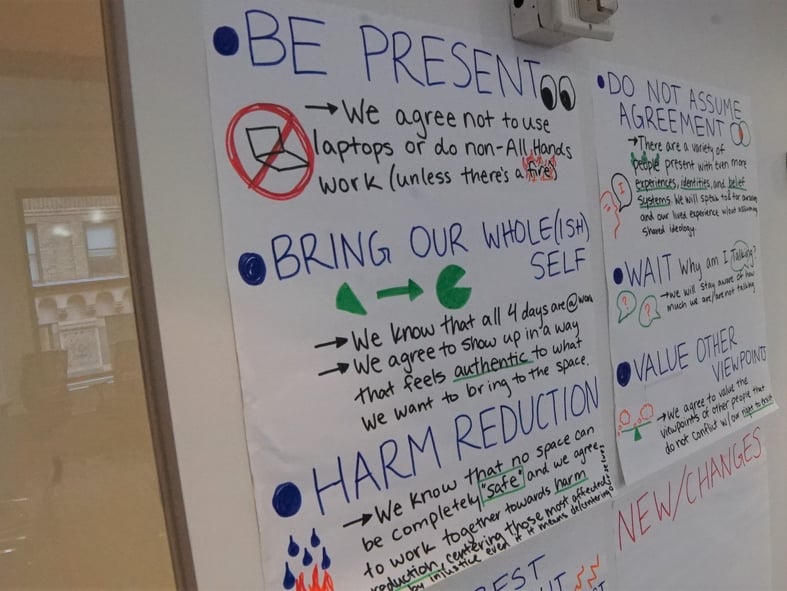 BE PRESENT
→ We agree not to use
laptops or do non-All Hands
work (unless there's a fire)
BRING OUR WHOLE(ISH)
SELF
→ We know that all 4 days are @ work
→ We agree to show up in a way
that feels authentic to what
we want to bring to the space.
HARM REDUCTION
→ We know that no space can
be completely "safe" and we agree
to work together towards harm
reduction, centering those most affected
by injustice even if it means decentering
DO NOT ASSUME
AGREEMENT
→ There are a variety of
people present with even more
experiences, identities, and belief
systems. We will speak
and our lived experience w/out assuming
shared ideology.
WAIT Why am I Talking?
→ we will stay aware of how
much we are/are not talking
VALUE OTHER
VIEWPOINTS
→ We agree to value the
viewpoints of other people that
do not conflict w/ our right to exist
NEW/CHANGES